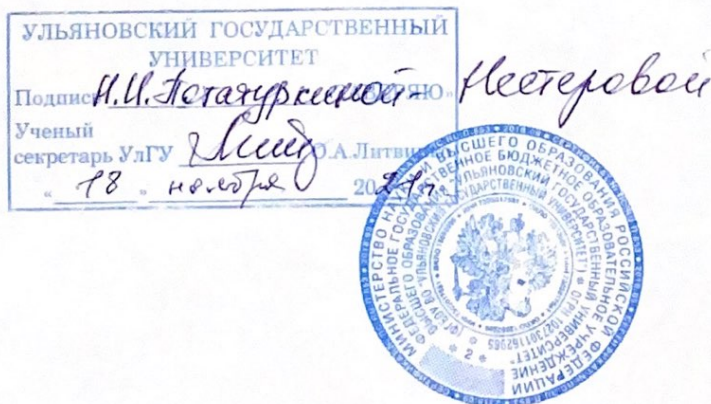 УЛЬЯНОВСКИЙ ГОСУДАРСТВЕННЫЙ
УНИВЕРСИТЕТ
Подпись Н.И. Потатуркиной- Нестеровой
Ученый
секретарь УлГУ О.А.Литви
« 18 » ноября 2021г.
МИНИСТЕРСТВО НАУКИ И ВЫСШЕГО ОБРАЗОВАНИЯ РОССИЙСКОЙ ФЕДЕРАЦИИ
ФЕДЕРАЛЬНОЕ ГОСУДАРСТВЕННОЕ БЮДЖЕТНОЕ ОБРАЗОВАТЕЛЬНОЕ УЧРЕЖДЕНИЕ
ВЫСШЕГО ОБРАЗОВАНИЯ "УЛЬЯНОВСКИЙ ГОСУДАРСТВЕННЫЙ УНИВЕРСИТЕТ"
* 2 *